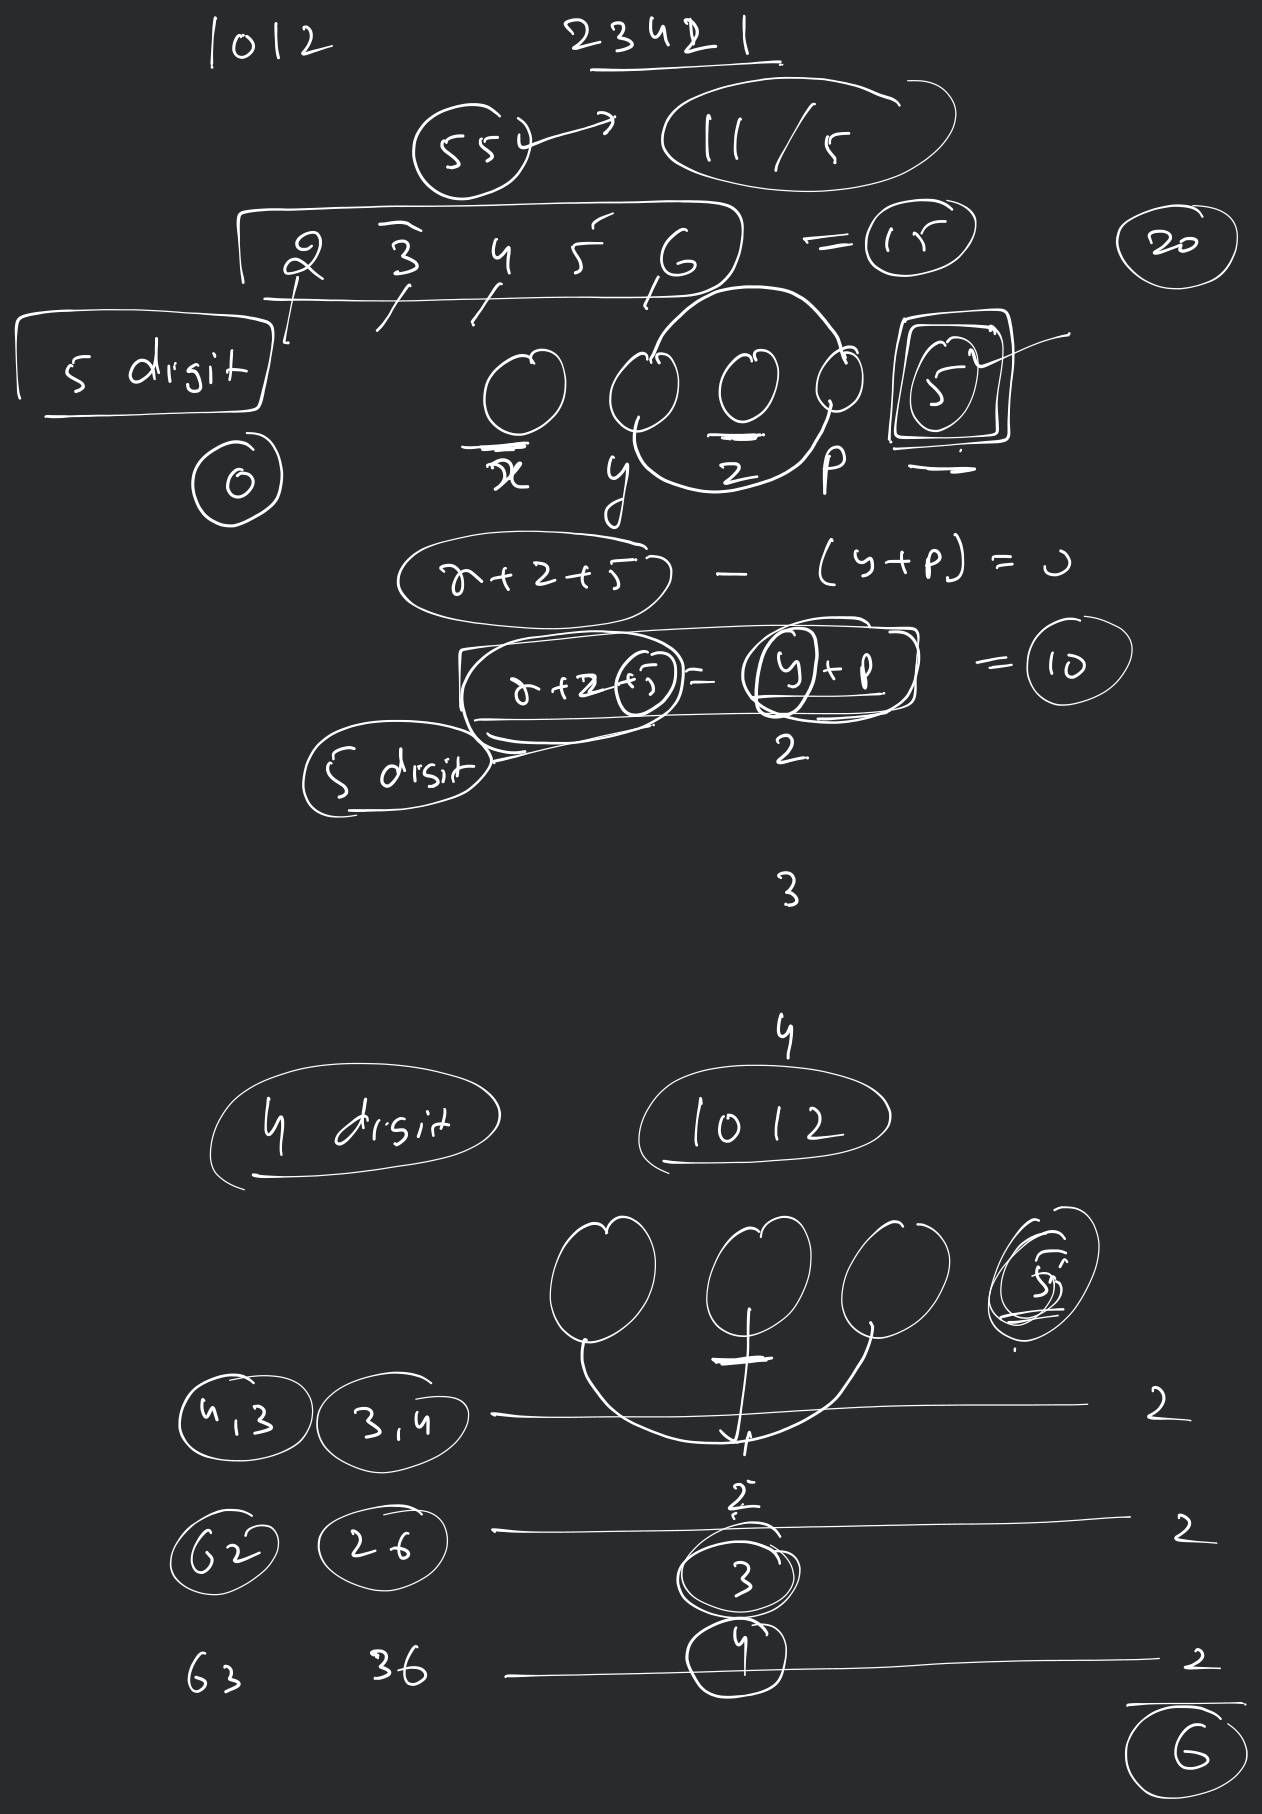 1012 23421
55 → 11/5
2 3 4 5 6 = 15 20
5 digit 5
0 x y z p
x+z+5 - (y+p) = 0
x+z+5 = y+p = 10
5 digit 2
3
4
4 digit 1012
5
4,3 3,4 2
2
62 26 2
3
63 36 4 2
6